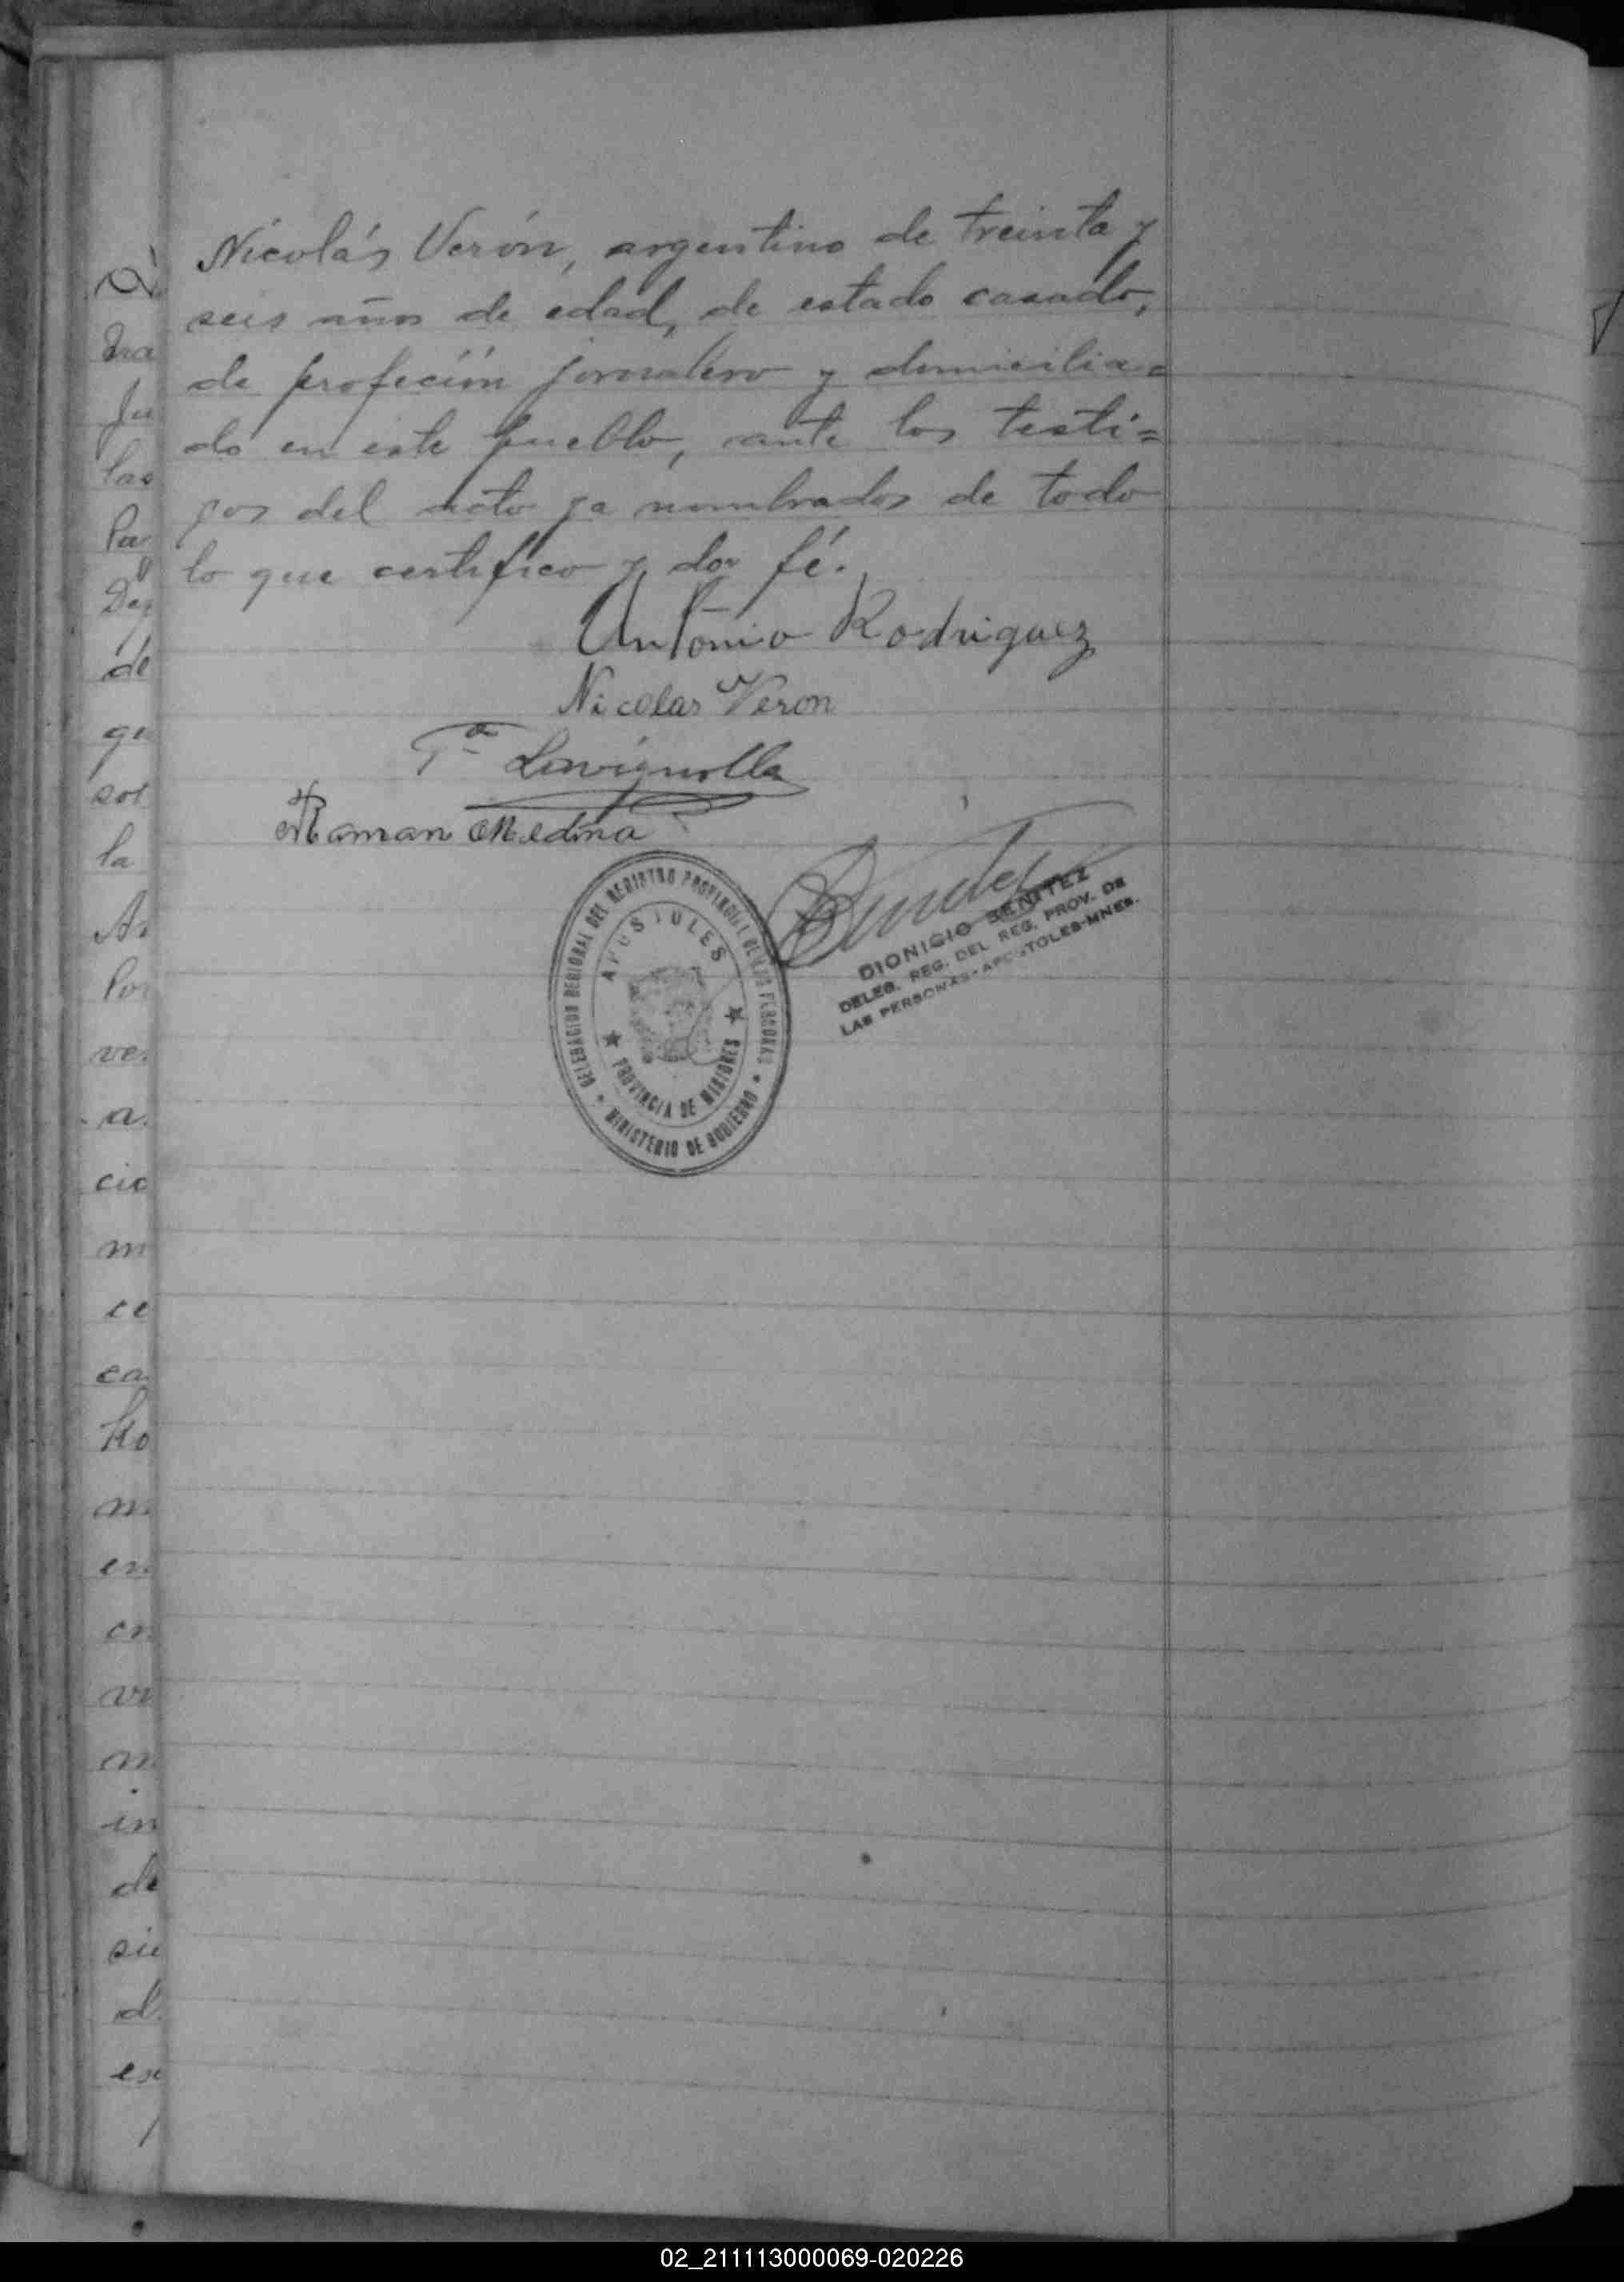 Nicolás Verón, argentino de treinta y
seis años de edad, de estado casado,
de profeción jornalero y domicilia=
do en este pueblo, ante los testi=
gos del acto ya nombrados de todo
lo que certifico y doy fé.
Antonio Rodriguez
Nicolas Veron
Lavignolla
Raman Medina
DELEGACION REGIONAL DEL REGISTRO PROVINCIAL DE LAS PERSONAS
APOSTOLES
PROVINCIA DE MISIONES
MINISTERIO DE GOBIERNO
DIONICIO BENITEZ
DELEG. REG. DEL REG. PROV. DE
LAS PERSONAS-APOSTOLES-MNES.
las
de
la
a
cio
de
02_211113000069-020226